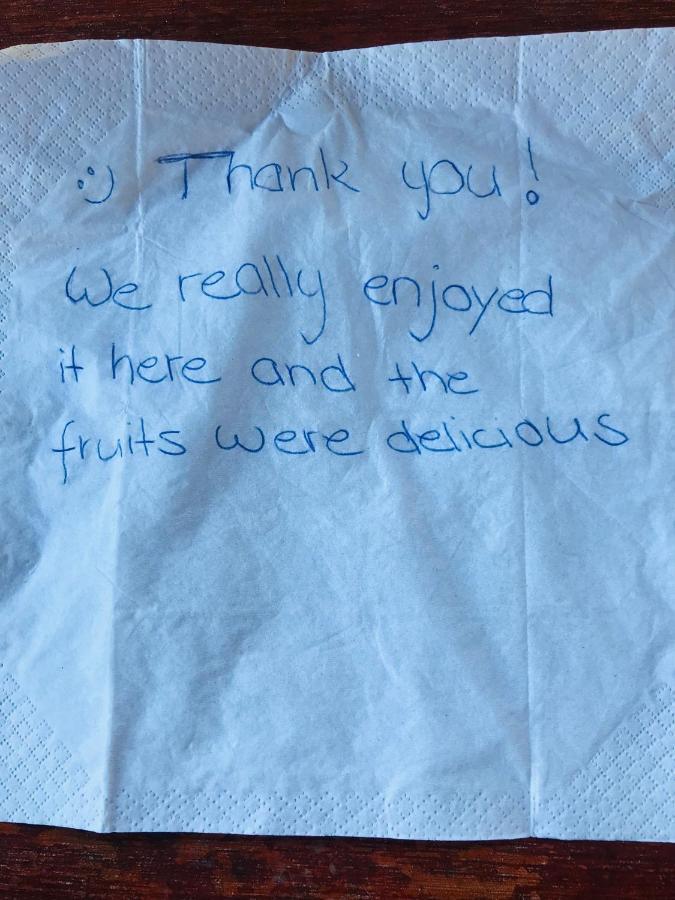 :) Thank you!
We really enjoyed
it here and the
fruits were delicious